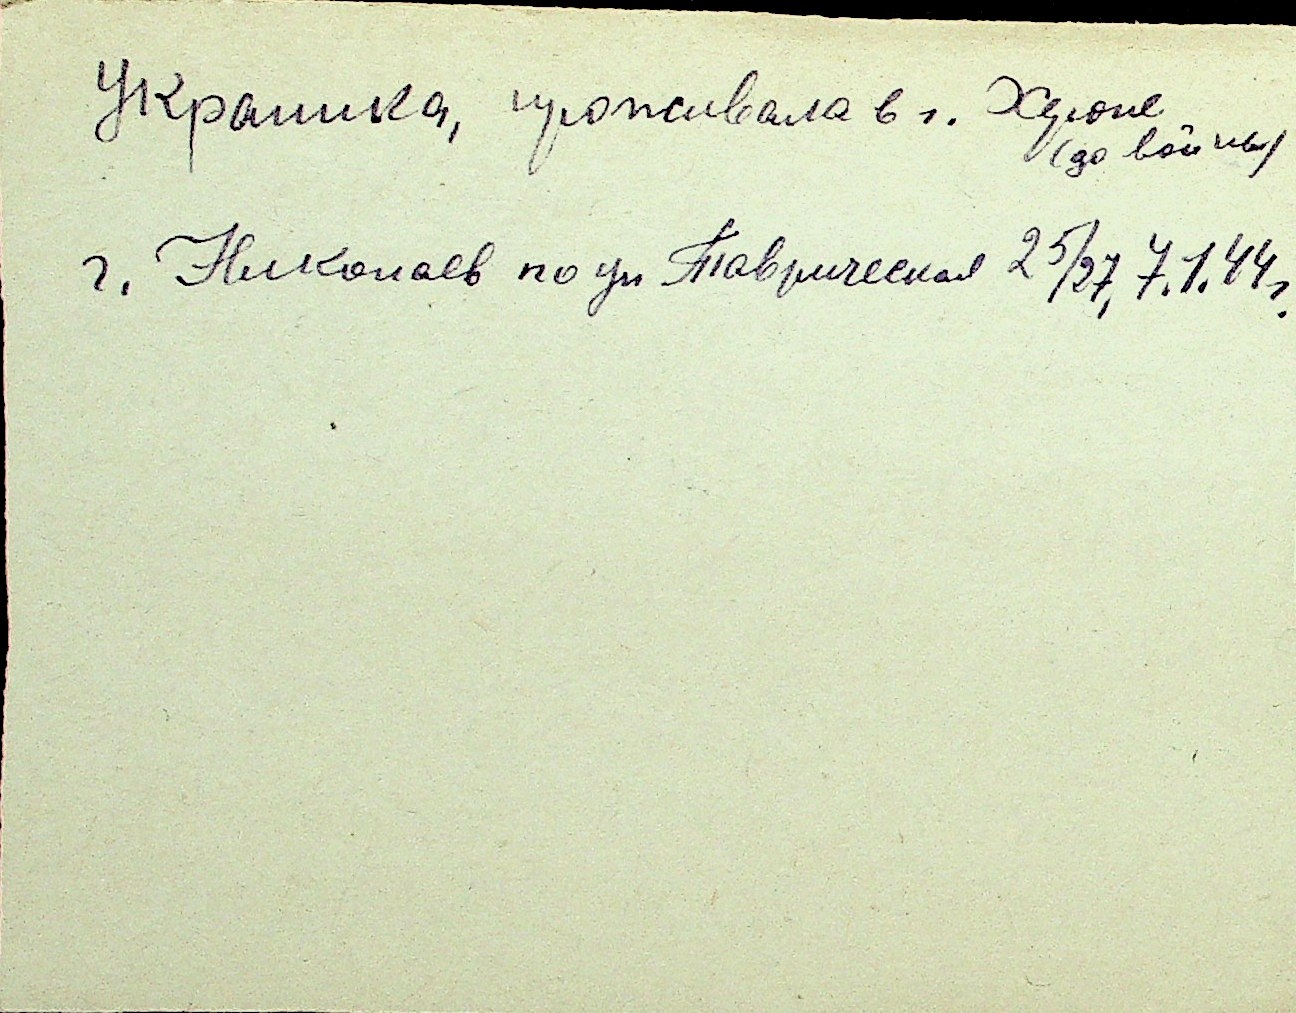 Украинка, проживала в г. Херсоне
(до войны)
г. Николаев по ул Таврическая 25/27, 7.1.44г.